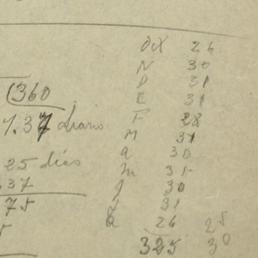 OX 26
N 30
D 31
(360 E 31
1.37 diario F 28
M 31
a 30
25 días m 31
.37 J 30
75 J 31
a 26 25
325 30